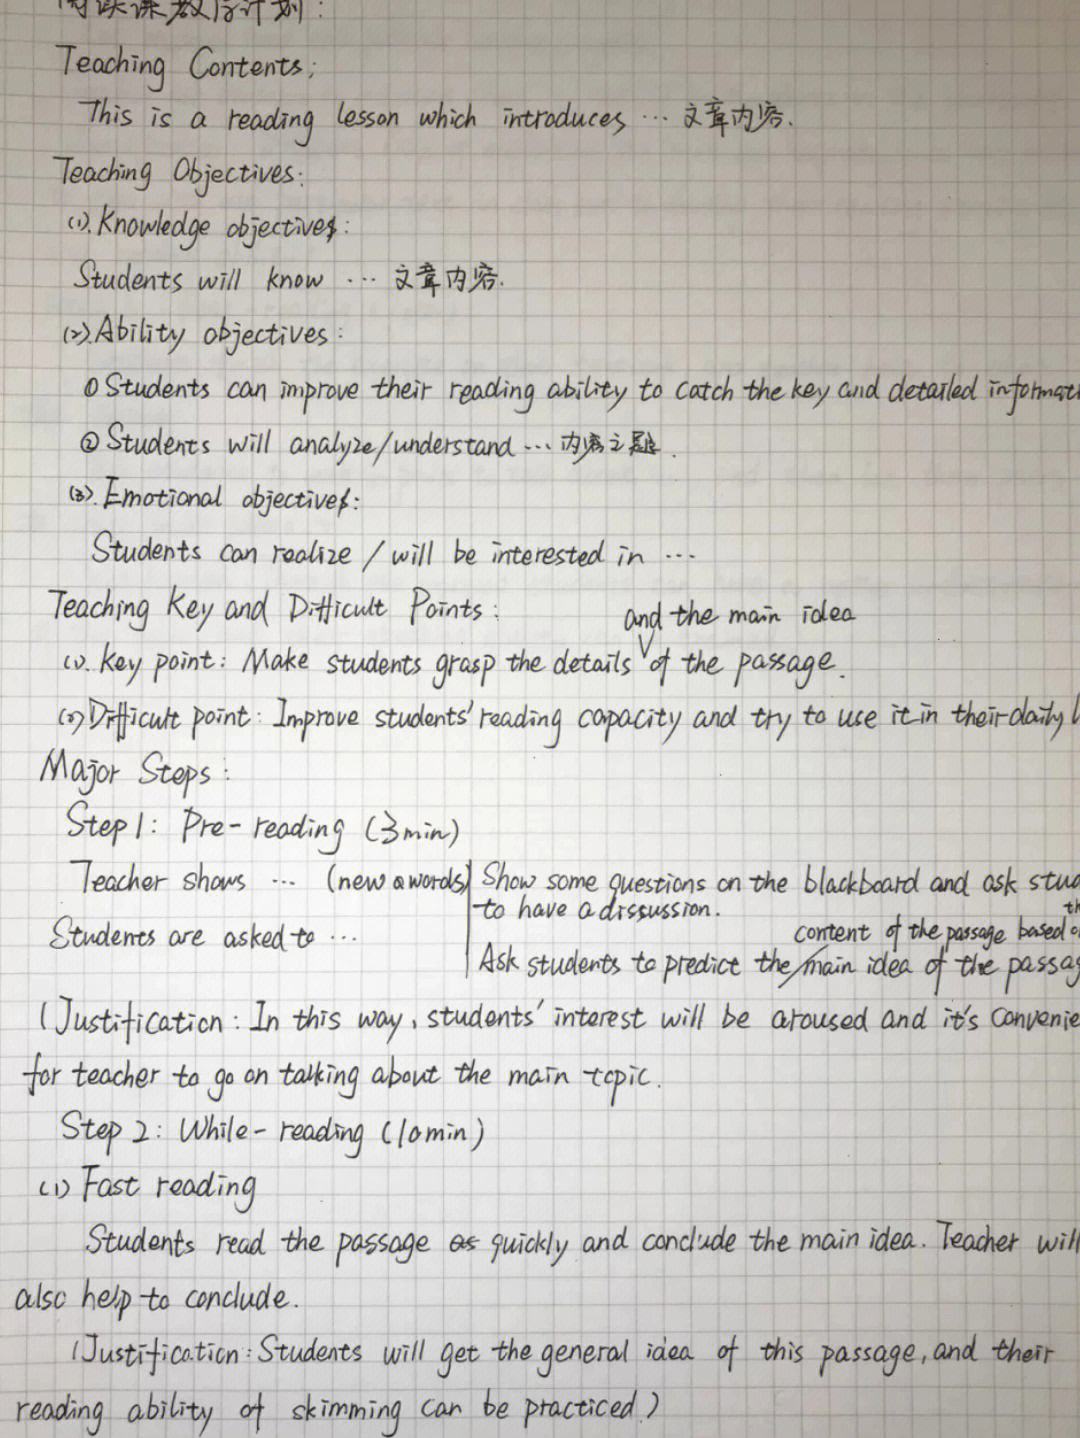 阅读课教学计划:
Teaching Contents:
This is a reading lesson which introduces ... 文章内容.
Teaching Objectives:
(1). Knowledge objectives:
Students will know ... 文章内容.
(2). Ability objectives:
① Students can improve their reading ability to catch the key and detailed informati
② Students will analyze/understand ... 内容主题.
(3). Emotional objectives:
Students can realize / will be interested in ...
Teaching Key and Difficult Points:
and the main idea
(1). Key point: Make students grasp the details of the passage.
(2) Difficult point: Improve students' reading capacity and try to use it in their daily l
Major Steps:
Step 1: Pre-reading (3min)
Teacher shows ... (new words) Show some questions on the blackboard and ask stud
to have a disscussion.
Students are asked to ... content of the passage based o
Ask students to predict the main idea of the passag
(Justification: In this way, students' interest will be aroused and it's convenie
for teacher to go on talking about the main topic.
Step 2: While-reading (10min)
(1) Fast reading
Students read the passage quickly and conclude the main idea. Teacher will
also help to conclude.
(Justification: Students will get the general idea of this passage, and their
reading ability of skimming can be practiced.)